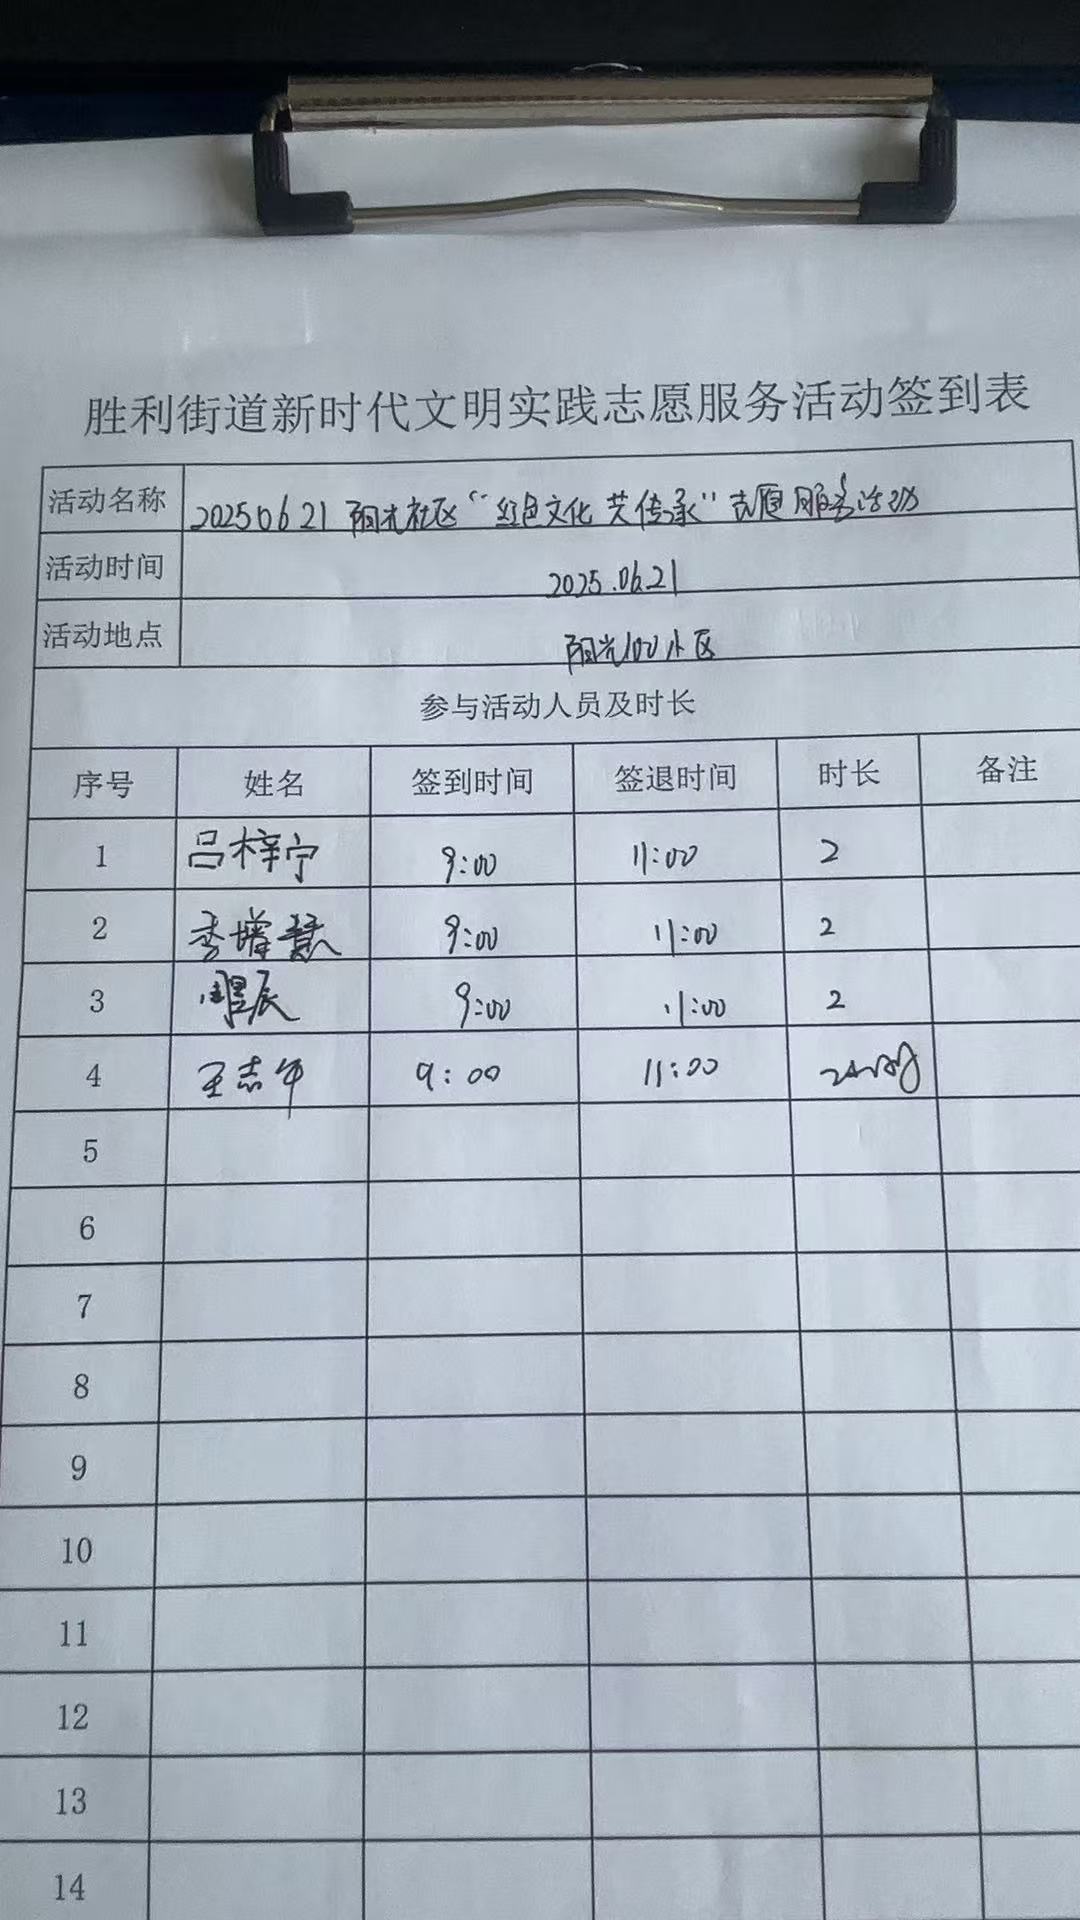 胜利街道新时代文明实践志愿服务活动签到表
活动名称 20250621 阳光社区“红色文化 共传承”志愿服务活动
活动时间 2025.06.21
活动地点 阳光100小区
参与活动人员及时长
序号 姓名 签到时间 签退时间 时长 备注
1 吕梓宁 9:00 11:00 2
2 李增慧 9:00 11:00 2
3 辰 9:00 11:00 2
4 王志年 9:00 11:00 2小时
5
6
7
8
9
10
11
12
13
14